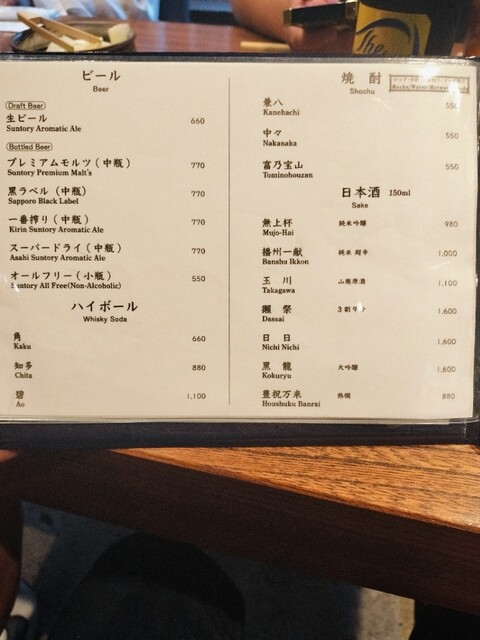 The
ビール
Beer
Draft Beer
生ビール 660
Suntory Aromatic Ale
Bottled Beer
プレミアムモルツ（中瓶） 770
Suntory Premium Malt's
黒ラベル（中瓶） 770
Sapporo Black Label
一番搾り（中瓶） 770
Kirin Suntory Aromatic Ale
スーパードライ（中瓶） 770
Asahi Suntory Aromatic Ale
オールフリー（小瓶） 550
Suntory All Free(Non-Alcoholic)
ハイボール
Whisky Soda
角 660
Kaku
知多 880
Chita
碧 1,100
Ao
焼酎
Shochu
Rocks/Water/Hotwater/Soda
兼八 550
Kanehachi
中々 550
Nakanaka
富乃宝山 550
Tominohouzan
日本酒 150ml
Sake
無上杯 純米吟醸 980
Mujo-Hai
播州一献 純米 超辛 1,000
Banshu Ikkon
玉川 山廃原酒 1,100
Takagawa
獺祭 3割9分 1,600
Dassai
日日 1,600
Nichi Nichi
黒龍 大吟醸 1,600
Kokuryu
豊祝万来 熱燗 880
Houshuku Banrai